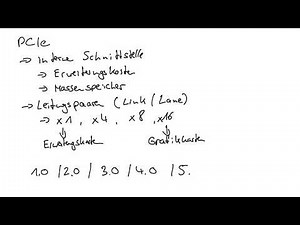 PCIe
→ interne Schnittstelle
→ Erweiterungskarte
→ Massenspeicher
→ Leitungspaaren (Link / Lane)
→ x1, x4, x8, x16
Erweiterungskarte Grafikkarten
1.0 / 2.0 / 3.0 / 4.0 / 5.